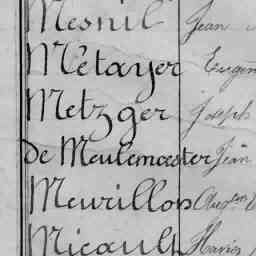 Mesnil Jean
Métayer Eugèn
Metzger Joseph
de Meulemeester Jean
Meurillon
Micault